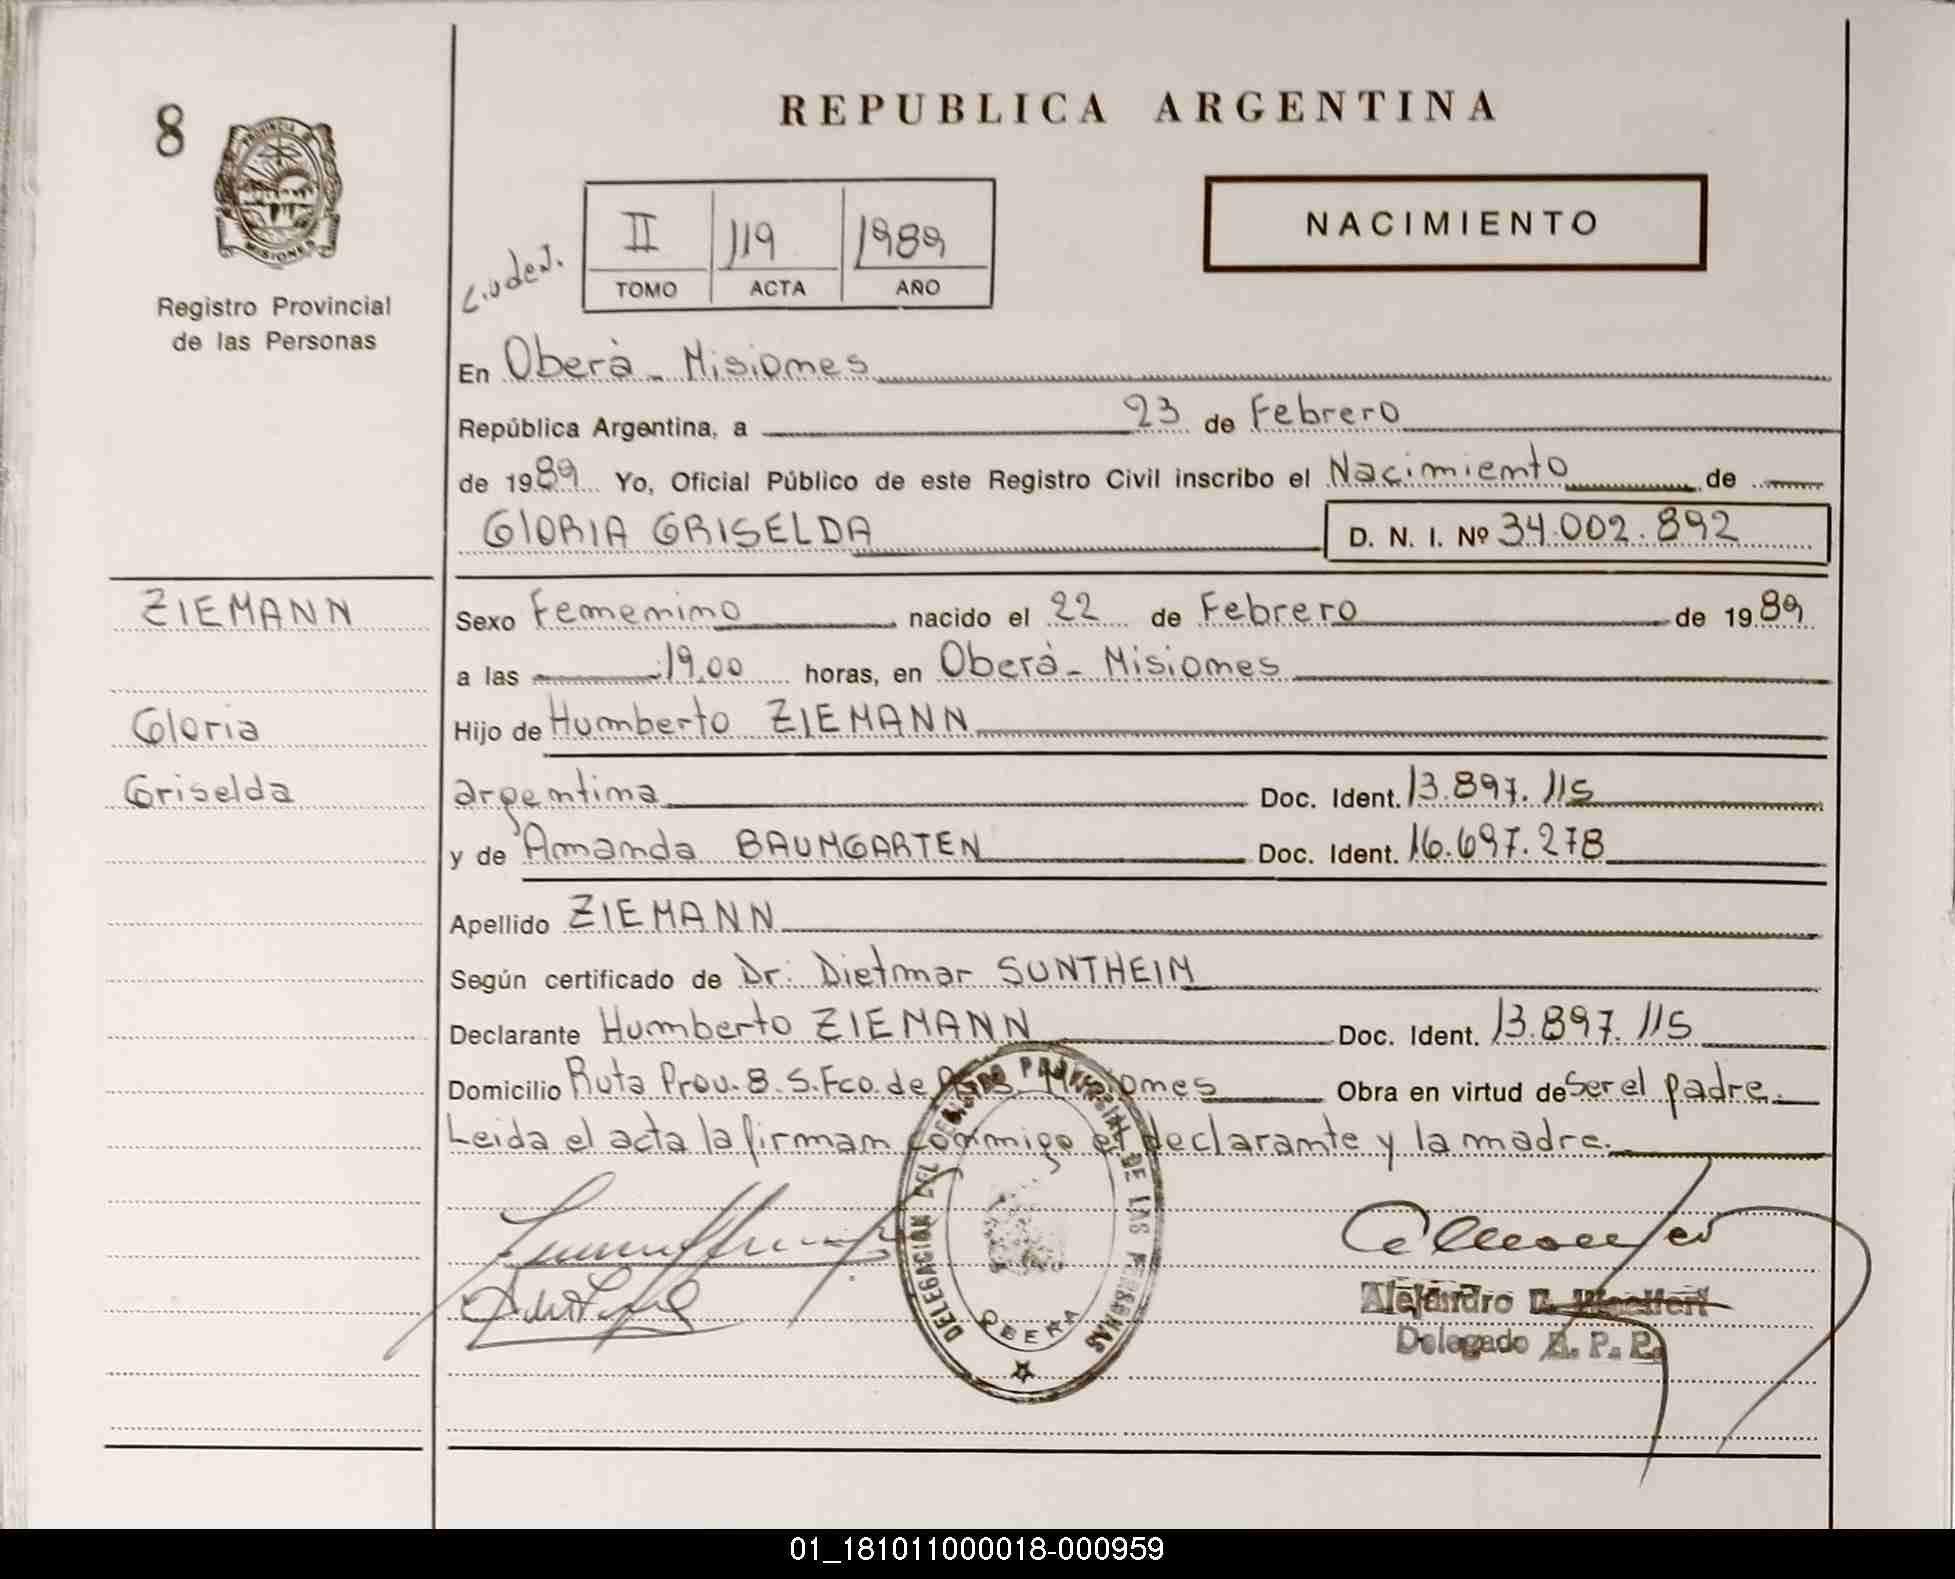 8
PROVINCIA DE
MISIONES
Registro Provincial
de las Personas
REPUBLICA ARGENTINA
NACIMIENTO
Ciudad.
II 119 1989
TOMO ACTA AÑO
En Oberà - Misiones
República Argentina, a 23 de Febrero
de 1989 Yo, Oficial Público de este Registro Civil inscribo el Nacimiento de
GlORIA GRISELDA D. N. I. Nº 34.002.892
ZIEMANN
Gloria
Griselda
Sexo Femenino nacido el 22 de Febrero de 1989
a las 19,00 horas, en Oberá - Misiones
Hijo de Humberto ZIEMANN
argentina Doc. Ident. 13.897.115
y de Amanda BAUMGARTEN Doc. Ident. 16.697.278
Apellido ZIEMANN
Según certificado de Dr: Dietmar SUNTHEIM
Declarante Humberto ZIEMANN Doc. Ident. 13.897.115
Domicilio Ruta Prov. 8. S. Fco. de Asis Misiones Obra en virtud de Ser el padre.
Leida el acta la firman conmigo el declarante y la madre.
DELEGACION DEL REGISTRO PROVINCIAL DE LAS PERSONAS
OBERA
Alejandro
Delegado R. P. P.
01_181011000018-000959